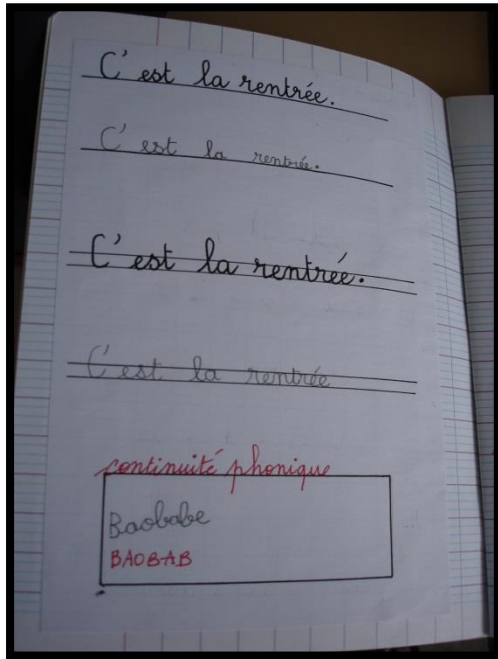 C'est la rentrée.
C'est la rentrée.
C'est la rentrée.
C'est la rentrée
continuité phonique
Baobabe
BAOBAB